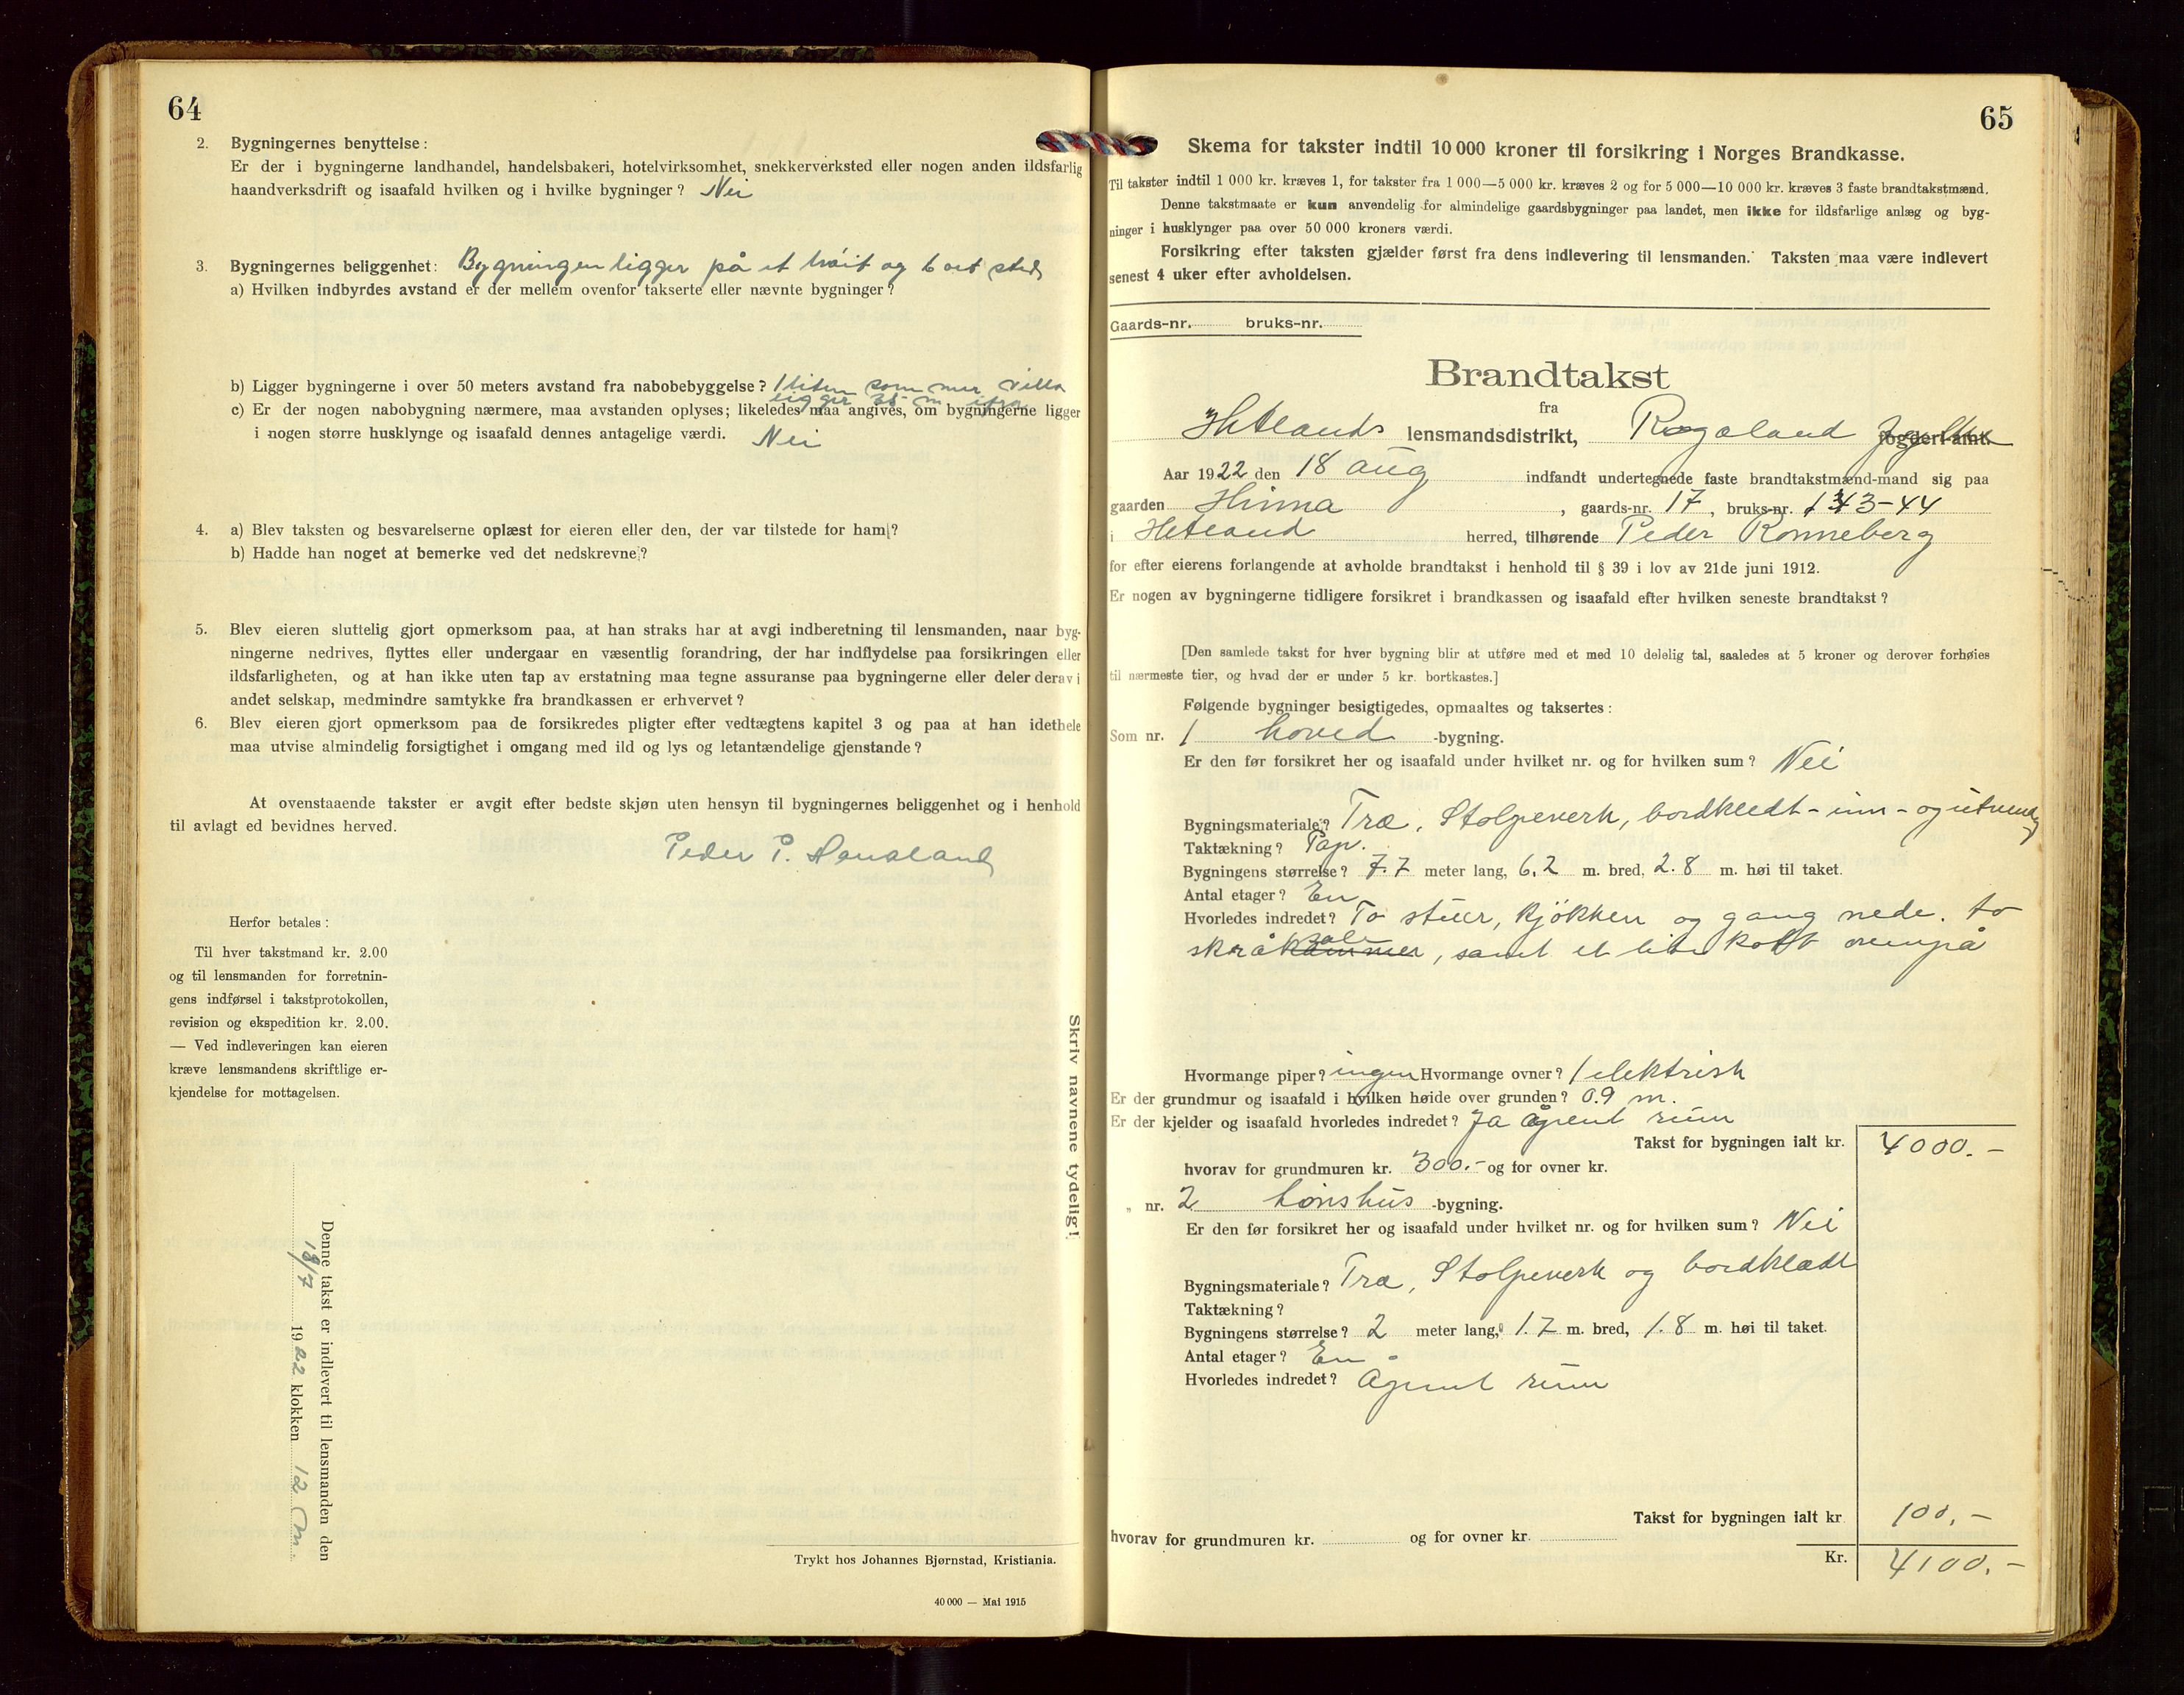 64
2. Bygningernes benyttelse:
Er der i bygningerne landhandel, handelsbakeri, hotelvirksomhet, snekkerverksted eller nogen anden ildsfarlig
haandverksdrift og isaafald hvilken og i hvilke bygninger? Nei
3. Bygningernes beliggenhet: Bygningen ligger på et höit og tört sted
a) Hvilken indbyrdes avstand er der mellem ovenfor takserte eller nævnte bygninger?
b) Ligger bygningerne i over 50 meters avstand fra nabobebyggelse? 1 liten sommer villa
ligger 35 m ifra
c) Er der nogen nabobygning nærmere, maa avstanden oplyses; likeledes maa angives, om bygningerne ligger
i nogen større husklynge og isaafald dennes antagelige værdi. Nei
4. a) Blev taksten og besvarelserne oplæst for eieren eller den, der var tilstede for ham?
b) Hadde han noget at bemerke ved det nedskrevne?
5. Blev eieren sluttelig gjort opmerksom paa, at han straks har at avgi indberetning til lensmanden, naar byg-
ningerne nedrives, flyttes eller undergaar en væsentlig forandring, der har indflydelse paa forsikringen eller
ildsfarligheten, og at han ikke uten tap av erstatning maa tegne assuranse paa bygningerne eller deler derav i
andet selskap, medmindre samtykke fra brandkassen er erhvervet?
6. Blev eieren gjort opmerksom paa de forsikredes pligter efter vedtægtens kapitel 3 og paa at han idethele
maa utvise almindelig forsigtighet i omgang med ild og lys og letantændelige gjenstande?
At ovenstaaende takster er avgit efter bedste skjøn uten hensyn til bygningernes beliggenhet og i henhold
til avlagt ed bevidnes herved.
Peder P. Hausland
Herfor betales:
Til hver takstmand kr. 2.00
og til lensmanden for forretnin-
gens indførsel i takstprotokollen,
revision og ekspedition kr. 2.00.
— Ved indleveringen kan eieren
kræve lensmandens skriftlige er-
kjendelse for mottagelsen.
Denne takst er indlevert til lensmanden den
18/7 1922 klokken 12 m.
Skriv navnene tydelig!
Trykt hos Johannes Bjørnstad, Kristiania.
40 000 — Mai 1915
65
Skema for takster indtil 10 000 kroner til forsikring i Norges Brandkasse.
Til takster indtil 1 000 kr. kræves 1, for takster fra 1 000—5 000 kr. kræves 2 og for 5 000—10 000 kr. kræves 3 faste brandtakstmænd.
Denne takstmaate er kun anvendelig for almindelige gaardsbygninger paa landet, men ikke for ildsfarlige anlæg og byg-
ninger i husklynger paa over 50 000 kroners værdi.
Forsikring efter taksten gjælder først fra dens indlevering til lensmanden. Taksten maa være indlevert
senest 4 uker efter avholdelsen.
Gaards-nr. bruks-nr.
Brandtakst
fra
Hetlands lensmandsdistrikt, Rogaland fogderi-amt.
Aar 1922 den 18 aug indfandt undertegnede faste brandtakstmænd-mand sig paa
gaarden Hinna, gaards-nr. 17, bruks-nr. 143-44
i Hetland herred, tilhørende Peder Ronneberg
for efter eierens forlangende at avholde brandtakst i henhold til § 39 i lov av 21de juni 1912.
Er nogen av bygningerne tidligere forsikret i brandkassen og isaafald efter hvilken seneste brandtakst?
[Den samlede takst for hver bygning blir at utføre med et med 10 delelig tal, saaledes at 5 kroner og derover forhøies
til nærmeste tier, og hvad der er under 5 kr. bortkastes.]
Følgende bygninger besigtigedes, opmaaltes og taksertes:
Som nr. 1 hoved -bygning.
Er den før forsikret her og isaafald under hvilket nr. og for hvilken sum? Nei
Bygningsmateriale? Træ, Stolpeverk, bordkledt - inn - og utvendg
Taktækning? Pap.
Bygningens størrelse? 7.7 meter lang, 6.2 m. bred, 2.8 m. høi til taket.
Antal etager? En
Hvorledes indredet? To stuer, kjökken og gang nede. to
skråkammer, samt et lite kott ovenpå
Hvormange piper? ingen Hvormange ovner? 1 elektrisk
Er der grundmur og isaafald i hvilken høide over grunden? 0.9 m.
Er der kjelder og isaafald hvorledes indredet? Ja åpent rum
Takst for bygningen ialt kr. 4000.-
hvorav for grundmuren kr. 300.- og for ovner kr.
„ nr. 2 hönshus -bygning.
Er den før forsikret her og isaafald under hvilket nr. og for hvilken sum? Nei
Bygningsmateriale? Træ, Stolpeverk og bordklædt
Taktækning?
Bygningens størrelse? 2 meter lang, 1.7 m. bred, 1.8 m. høi til taket.
Antal etager? En -
Hvorledes indredet? Åpent rum
Takst for bygningen ialt kr 100.-
hvorav for grundmuren kr. og for ovner kr.
Kr. 4100.-